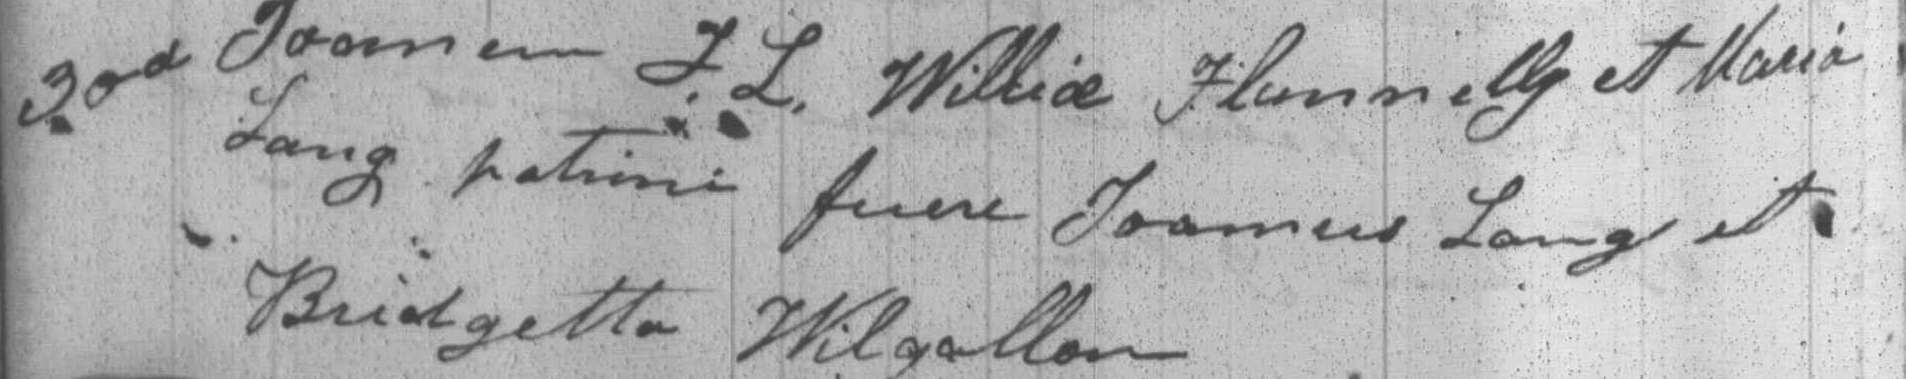 3rd Joannem F. L. Williæ Flannelly et Maria
Lang patrini fuere Joannes Lang et
Bridgetta Kilgallon